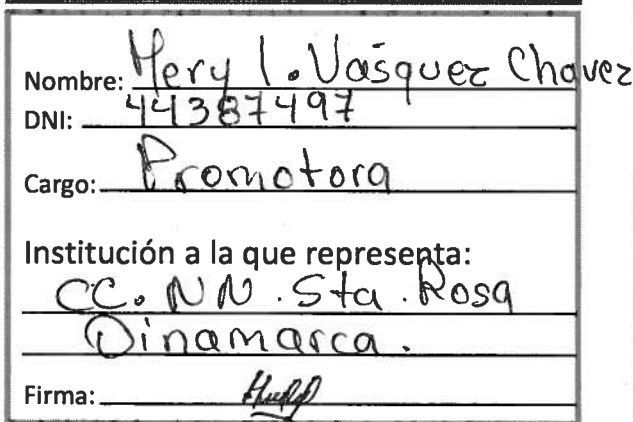 Nombre: Mery I. Vásquez Chavez
DNI: 44387497
Cargo: Promotora
Institución a la que representa:
CC. NN. Sta. Rosa
Dinamarca.
Firma: